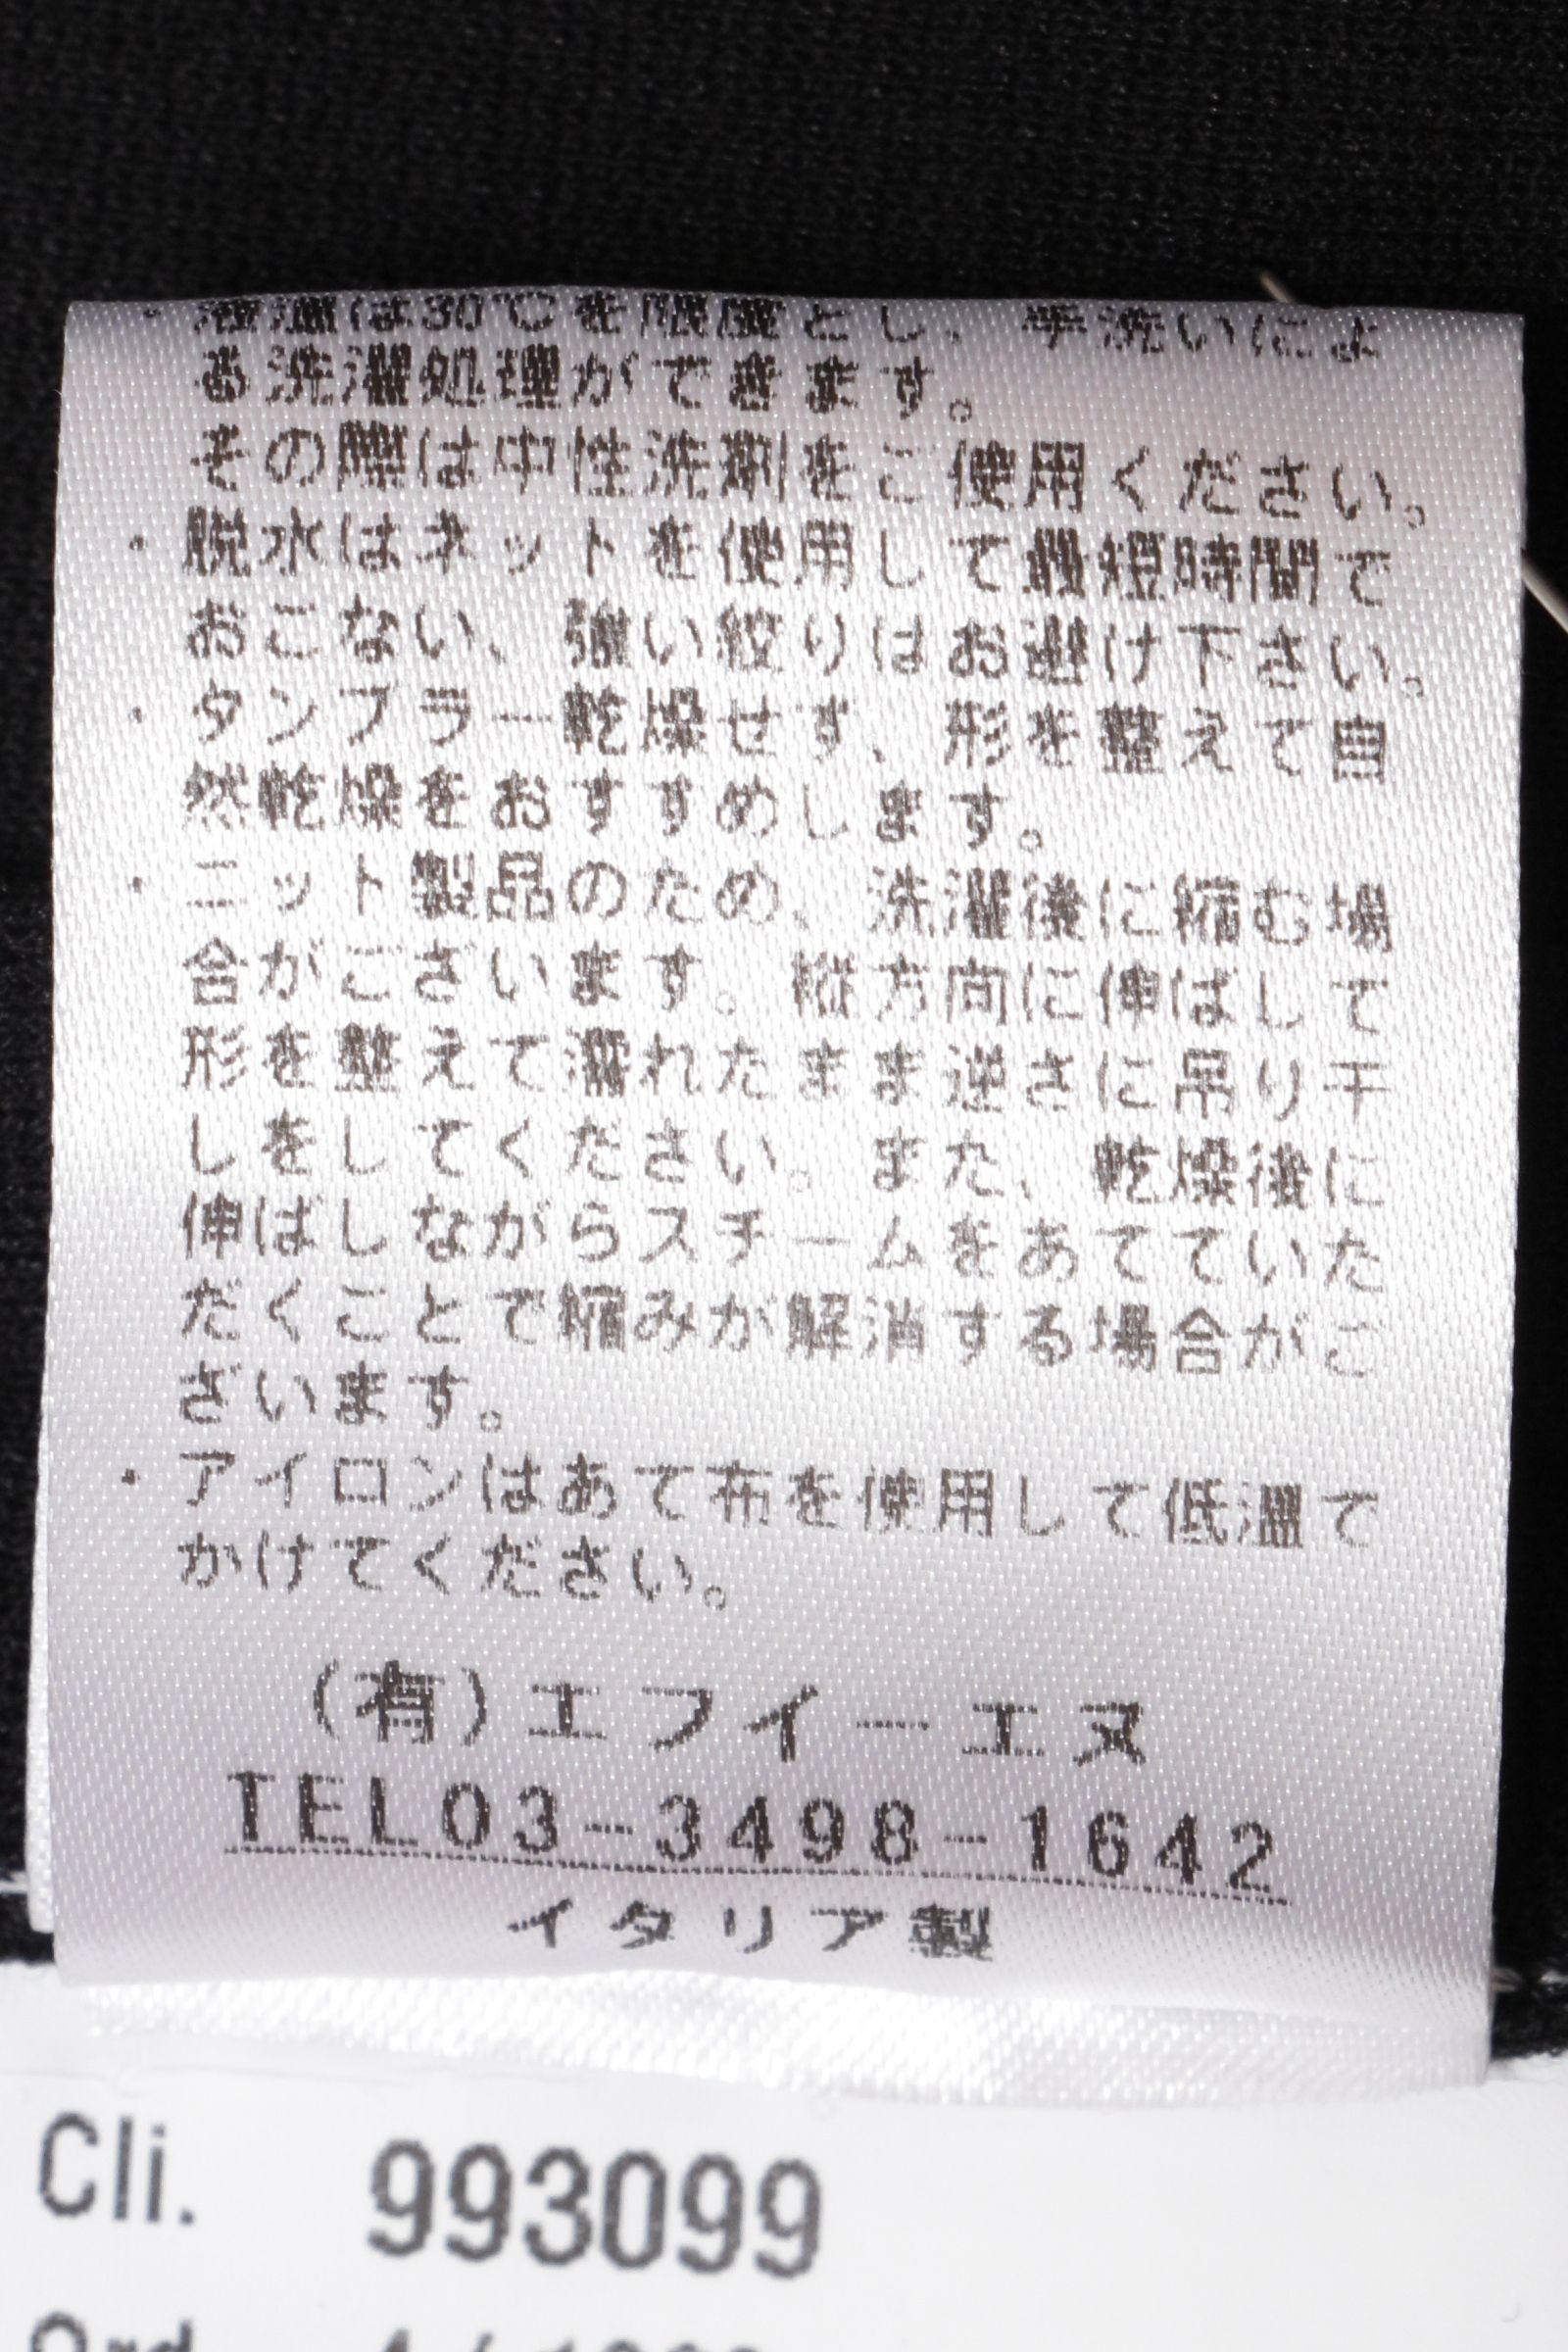 ・液温は30℃を限度とし、手洗いによ
る洗濯処理ができます。
その際は中性洗剤をご使用ください。
・脱水はネットを使用して最短時間で
おこない、強い絞りはお避け下さい。
・タンブラー乾燥せず、形を整えて自
然乾燥をおすすめします。
・ニット製品のため、洗濯後に縮む場
合がございます。縦方向に伸ばして
形を整えて濡れたまま逆さに吊り干
しをしてください。また、乾燥後に
伸ばしながらスチームをあてていた
だくことで縮みが解消する場合がご
ざいます。
・アイロンはあて布を使用して低温で
かけてください。
(有)エフイーエヌ
TEL03-3498-1642
イタリア製
Cli. 993099